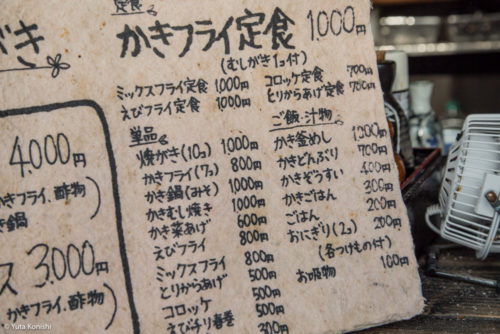 がき
4,000円
かきフライ、酢物
き鍋
ス 3,000円
かきフライ、酢物)
定食
かきフライ定食 1,000円
(むしがき1コ付)
ミックスフライ定食 1,000円
えびフライ定食 1,000円
コロッケ定食 700円
とりからあげ定食 700円
単品
焼がき(10コ) 1000円
かきフライ(7コ) 800円
かき鍋(みそ) 1000円
かきむし焼き 1000円
かき菜あげ 600円
えびフライ 800円
ミックスフライ 800円
とりからあげ 500円
コロッケ 500円
えびチリ春巻 300円
ご飯・汁物
かき釜めし 1000円
かきどんぶり 700円
かきぞうすい 400円
かきごはん 300円
ごはん 200円
おにぎり(2コ) 200円
(各つけもの付)
お吸物 100円
© Yuta Konishi